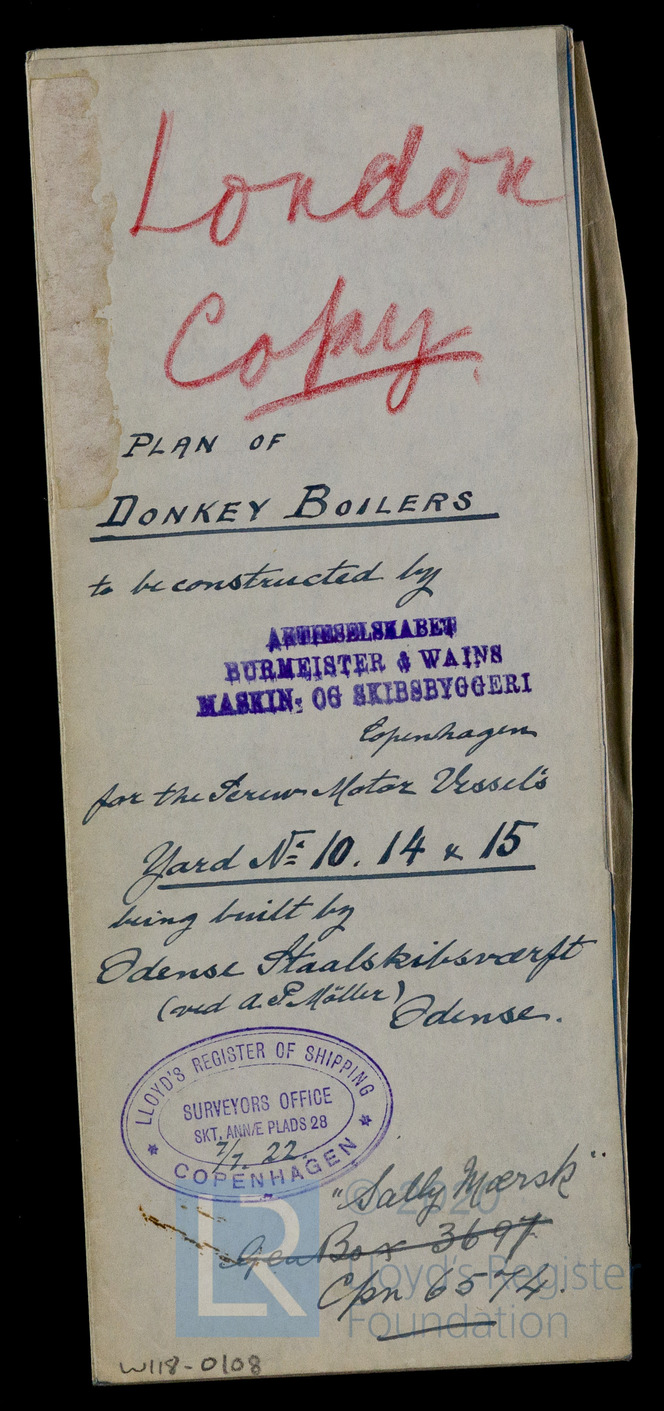 London
Copy.
PLAN OF
DONKEY BOILERS
to be constructed by
AKTIESELSKABET
BURMEISTER & WAINS
MASKIN- OG SKIBSBYGGERI
Copenhagen
for the Screw Motor Vessel's
Yard Nº 10. 14 & 15
being built by
Odense Staalskibsværft
(ved A. P. Möller)
Odense.
LLOYD'S REGISTER OF SHIPPING
SURVEYORS OFFICE
SKT. ANNÆ PLADS 28
7/7. 22.
COPENHAGEN
"Sally Mærsk"
Gen Box 3697
Cpn 6574.
LR © 2020
Lloyd's Register
Foundation
W118-0108